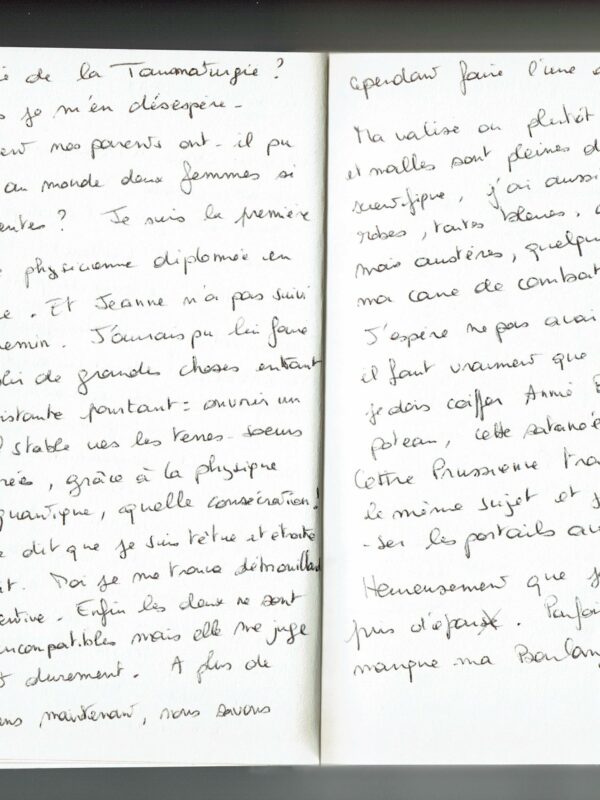 ie de la Taumaturgie ?
s je m'en désespère -
ent nos parents ont - il pu
au monde deux femmes si
entes ? Je suis la première
e physicienne diplomée en
e . Et Jeanne n'a pas suivi
hemin . J'aurais pu lui faire
plir de grandes choses en étant
sistante pourtant : ouvrir un
l stable vers les terres - soeurs
rées , grâce à la physique
quantique , quelle consécration !
e dit que je suis têtue et étroite
it . Moi je me trouve détrouillard
entive . Enfin les deux ne sont
incompatibles mais elle me juge
t durement . A plus de
ans maintenant , nous savons
cependant faire l'une
Ma valise ou plutôt
et malles sont pleines d
scientifique , j'ai aussi
robes , toutes bleues ,
mais austères , quelqu
ma cane de combat
J'espère ne pas avoi
il faut vraiment que
je dois coiffer Annie
poteau , cette satanée
Cette Prussienne tra
le même sujet et s
- ser les portails av
Heureusement que j
pris d'épouse . Parfoi
manque ma Boulan